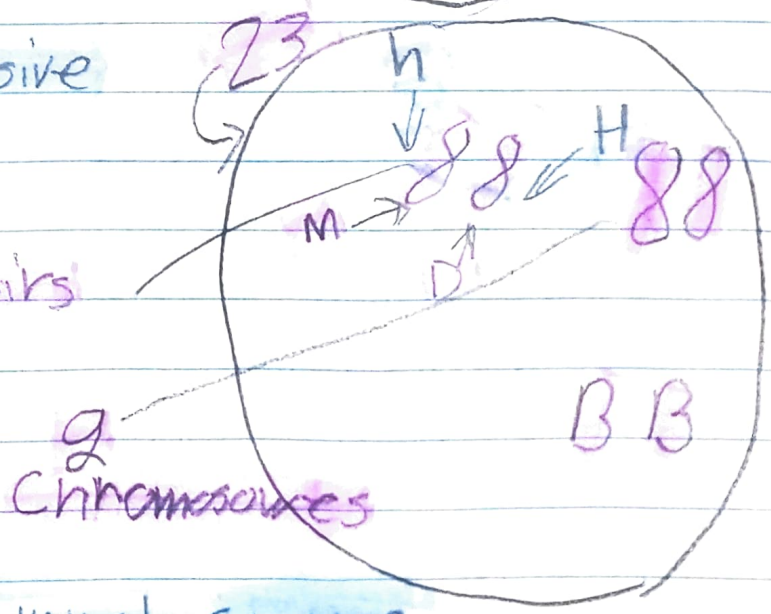 sive
23
h
H
M
D
irs
B B
g
Chromosomes